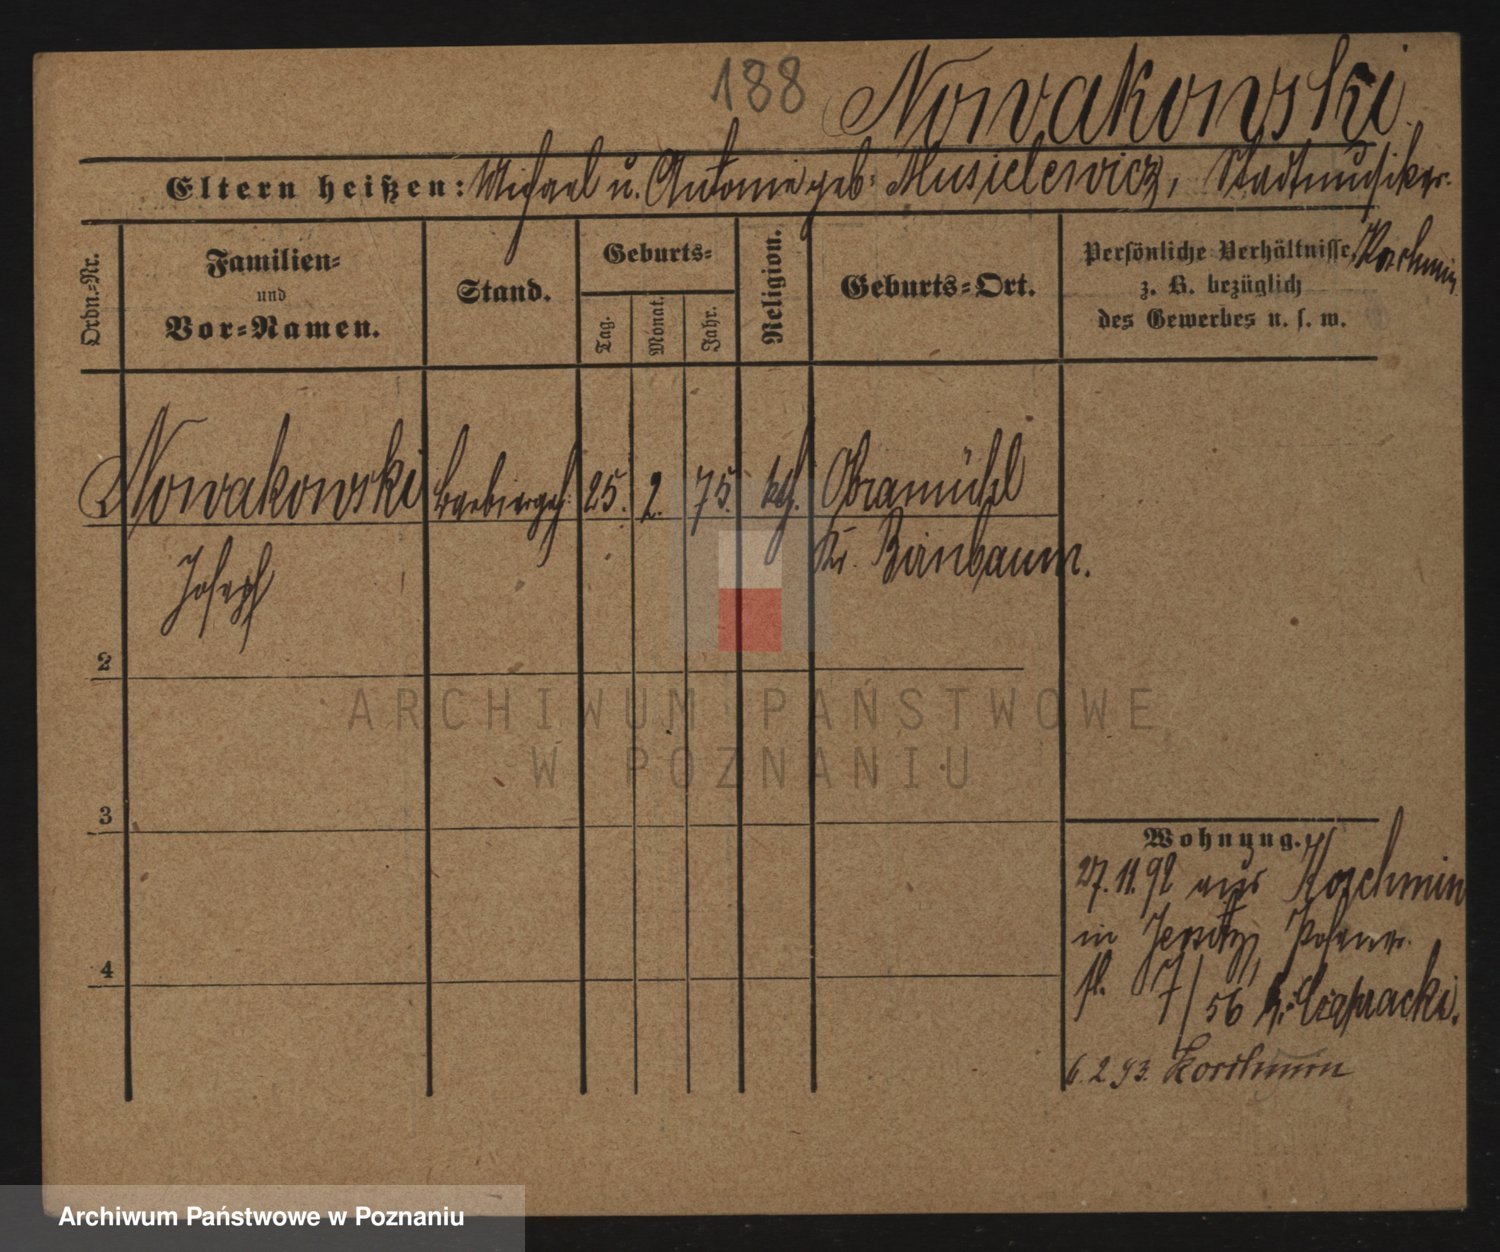 188 Nowakowski
Eltern heißen: Michael u. Antonie geb. Musielewicz, Stadtmusiker.
Koschmin
Ordn.-Nr.
Familien-
und
Vor-Namen.
Stand.
Geburts-
Tag.
Monat.
Jahr.
Religion.
Geburts-Ort.
Persönliche Verhältnisse,
z. B. bezüglich
des Gewerbes u. s. w.
Nowakowski Barbiergeh. 25. 2. 75. kth. Obramühl
Kr. Birnbaum.
Joseph
2
3
4
Wohnung.
27.11.92 aus Kozchmin
in Jersitz, Posener
str. 7/56 b.
6.2.93. Koschmin
ARCHIWUM PAŃSTWOWE
W POZNANIU
Archiwum Państwowe w Poznaniu